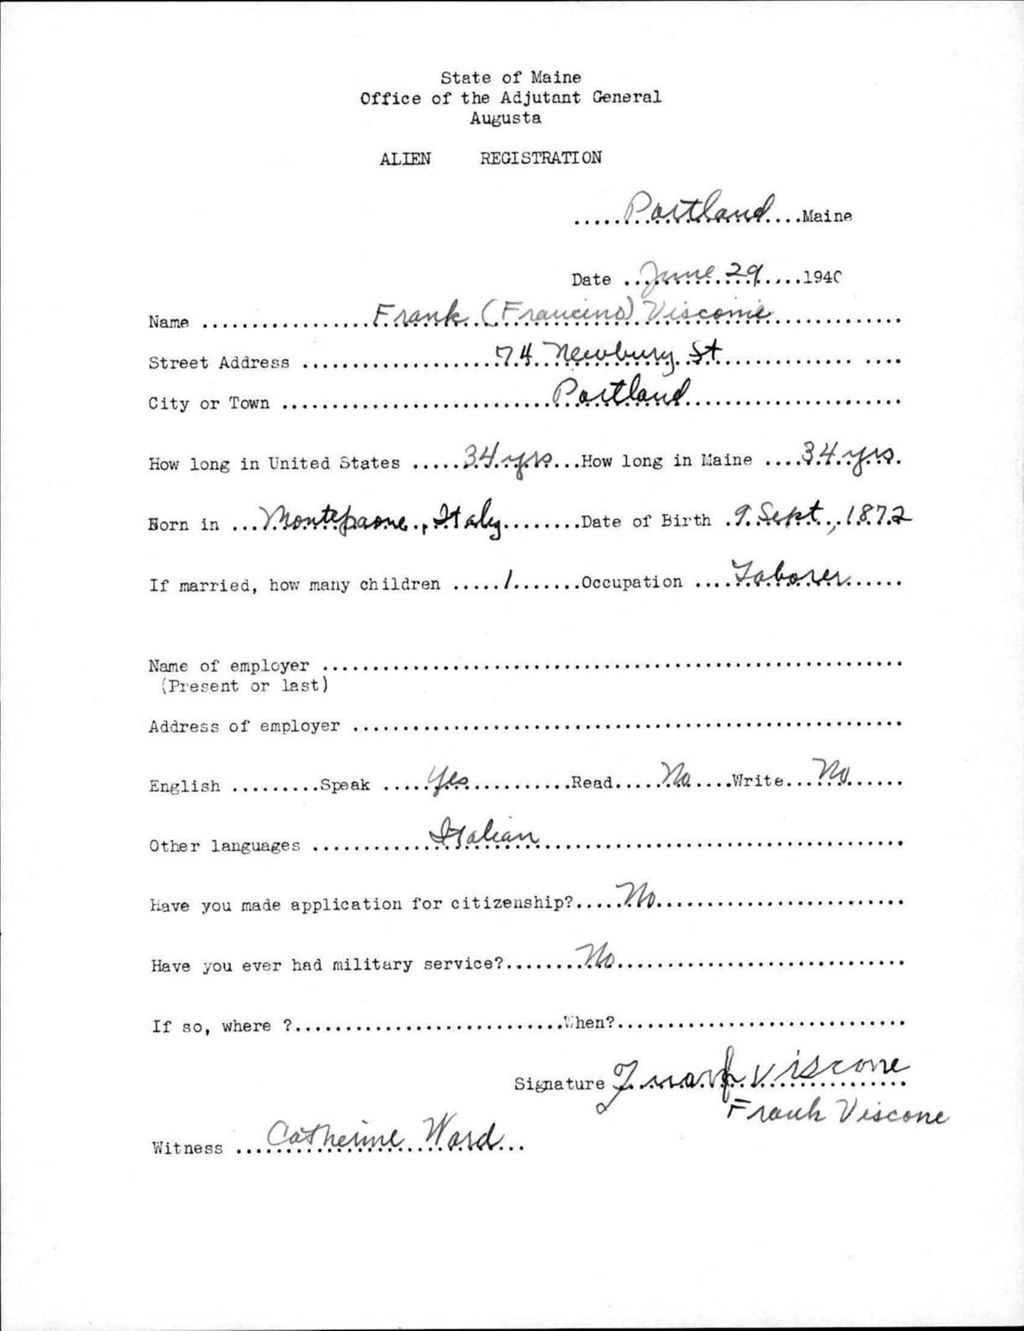 State of Maine
Office of the Adjutant General
Augusta
ALIEN REGISTRATION
.....Portland....Maine
Date ...June 29.....1940
Name .................Frank (Francino) Viscome.............
Street Address ....................74 Newbury St.................. ....
City or Town ..........................Portland......................
How long in United States .....34 yrs...How long in Maine ....34 yrs.
Born in ...Montepaone, Italy........Date of Birth .9 Sept., 1872
If married, how many children .....1.......Occupation ....Laborer......
Name of employer ..........................................................
(Present or last)
Address of employer .......................................................
English .........Speak .....Yes...........Read.....No....Write...No......
Other languages ............Italian.....................................
Have you made application for citizenship?.....No.........................
Have you ever had military service?........No.............................
If so, where ?...........................When?.............................
Signature Frank Viscone
Frank Viscone
Witness ....Catherine Ward...